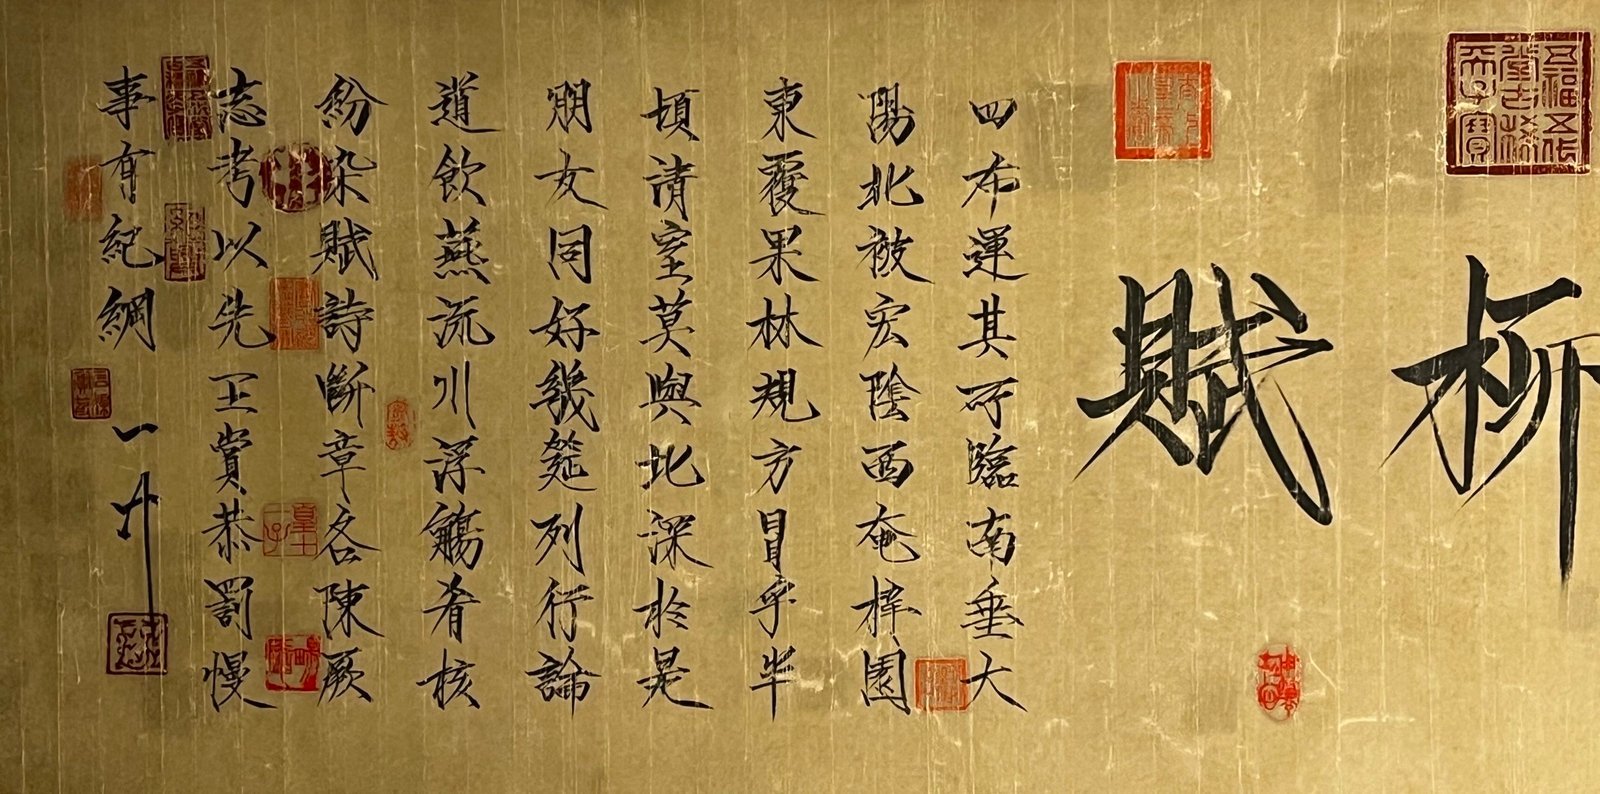 五福五代堂古稀天子寶
柳賦
四布運其所臨南垂大
陽北被宏陰西奄梓園
東覆果林規方冒乎半
頃清室莫與比深於是
朋友同好幾筵列行論
道飲燕流川浮觴肴核
紛杂賦詩斷章各陳厥
志考以先王賞恭罰慢
事有紀綱